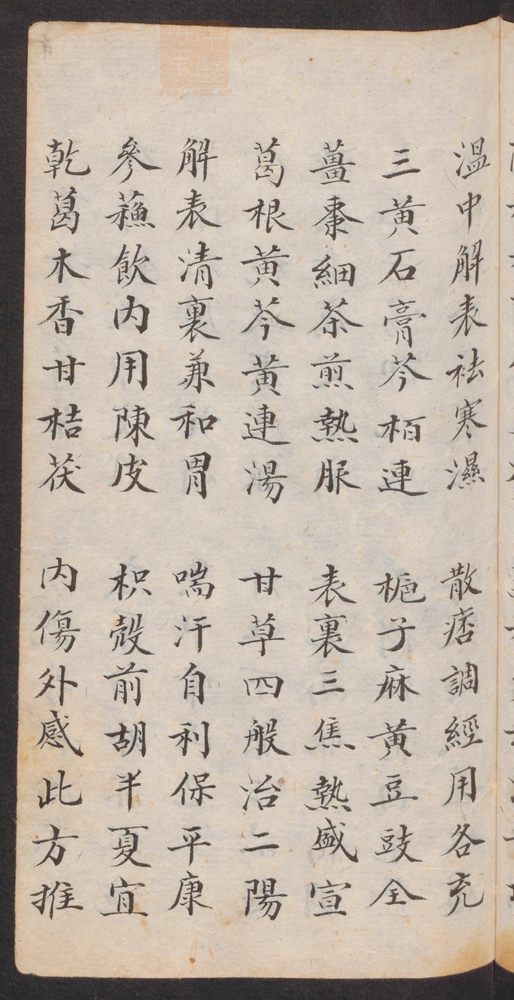 溫中解表袪寒濕 散痞調經用各充
三黃石膏芩栢連 梔子麻黃豆豉全
薑棗細茶煎熱服 表裏三焦熱盛宣
葛根黃芩黃連湯 甘草四般治二陽
解表清裏兼和胃 喘汗自利保平康
參蘓飲內用陳皮 枳殼前胡半夏宜
乾葛木香甘桔茯 內傷外感此方推